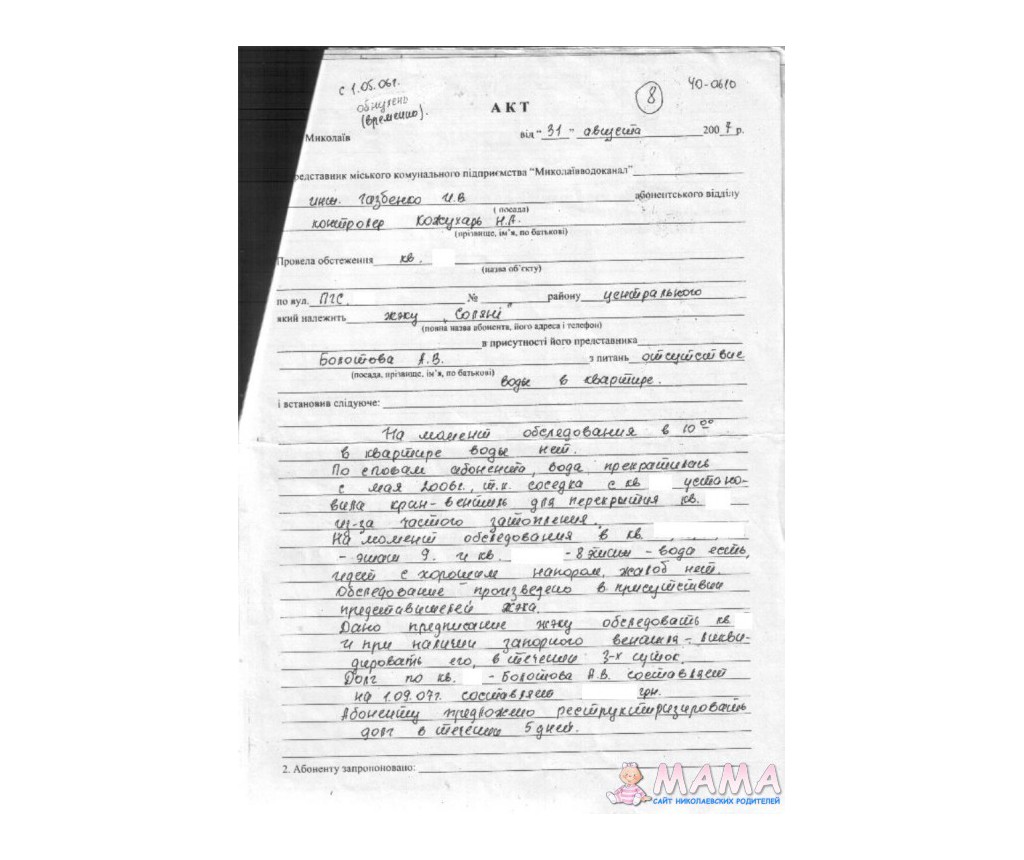 с 1.05.06г.
(временно).
8
40-0610
АКТ
Миколаїв від "31" августа 2007 р.
редставник міського комунального підприємства "Миколаївводоканал"
инж. Газбенко И.В. абонентського відділу
( посада)
контролер Кожухарь Н.А.
(прізвище, ім'я, по батькові)
Провела обстеження кв.
(назва об'єкту)
по вул. ПГС. № району центрального
який належить жжу „Соляні"
(повна назва абонента, його адреса і телефон)
в присутності його представника
Болотова А.В. з питань отсутствие
(посада, прізвище, ім'я, по батькові) воды в квартире.
і встановив слідуюче:
На момент обследования в 10 00
в квартире воды нет.
По словам абонента, вода прекратилась
с мая 2006г., т.к. соседка с кв устано-
вила кран-вентиль для перекрытия кв.
из-за частого затопления.
На момент обследования в кв.
- этаж 9. и кв. - 8 этаж - вода есть,
идет с хорошим напором, жалоб нет.
Обследование произведено в присутствии
представителей жэка.
Дано предписание жжу обследовать кв.
и при наличии запорного вентиля - ликви-
дировать его, в течении 3-х суток.
Долг по кв. - Болотова А.В. составляет
на 1.09.07г. составляет грн.
Абоненту предложено реструктризировать
долг в течении 5 дней.
2. Абоненту запропоновано:
МАМА
САЙТ НИКОЛАЕВСКИХ РОДИТЕЛЕЙ